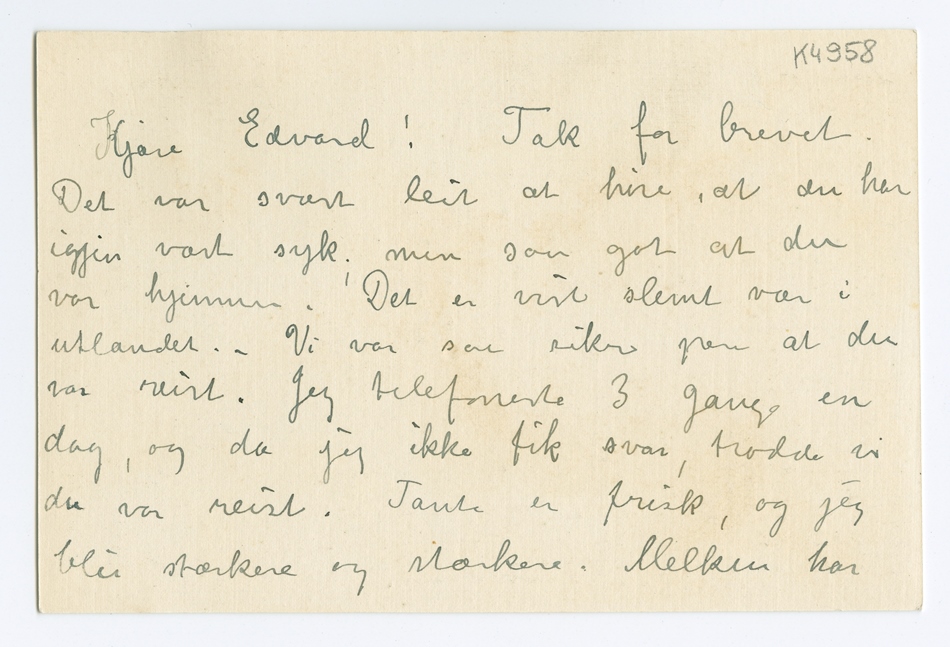 K4958
Kjære Edvard! Tak for brevet.
Det var svært leit at høre, at du har
igjen vært syk, men saa got at du
var hjemme. Det er vist slemt vær i
utlandet. - Vi var saa sikre paa at du
var reist. Jeg telefonerte 3 gange en
dag, og da jeg ikke fik svar, trodde vi
du var reist. Tante er frisk, og jeg
blir stærkere og stærkere. Melken har